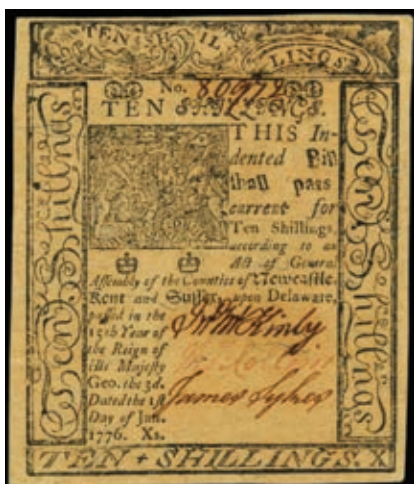 TEN SHILLINGS
No. 80972
TEN SHILLINGS.
THIS In-
dented Bill
shall pass
current for
Ten Shillings,
according to an
Act of General
Assembly of the Counties of Newcastle,
Kent and Sussex, upon Delaware,
passed in the
15th Year of
the Reign of
His Majesty
Geo. the 3d.
Dated the 1st
Day of Jan.
1776. Xs.
Jno McKinly
James Sykes
Ten Shillings
Ten Shillings
TEN SHILLINGS. X